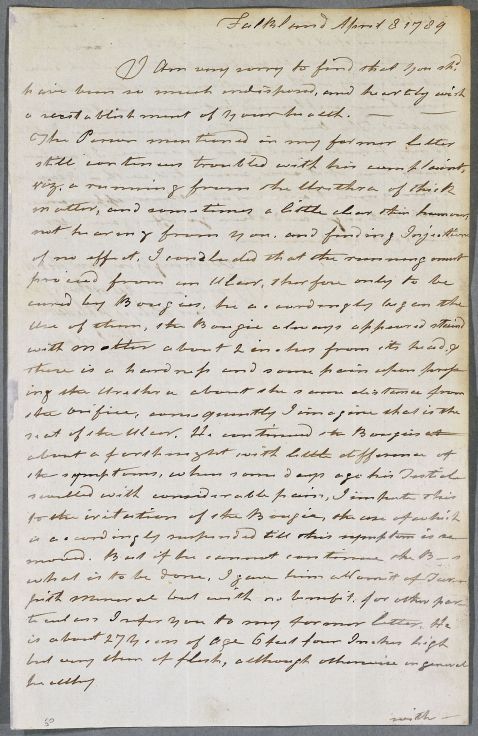 Falkland April 8 1789
I Am very sorry to find that you shd.
have been so much indisposed, and heartily wish
a reestablishment of your health. — —
The Person mentioned in my former letter
still continues troubled with his complaint,
viz. a running from the Urethra of thick
matter, and sometimes a little clear thin humour,
not hearing from you, and finding Injections
of no effect, I concluded that the running must
proceed from an Ulcer, therefore only to be
cured by Bougies, he accordingly began the
use of them, the Bougie always appeared stained
with matter about 2 inches from its head, &
there is a hardness and some pain upon press
ing the Urethra about the same distance from
the Orifice, consequently I imagine that is the
seat of the Ulcer. He continued the Bougies
about a forthnight with little difference of
the symptoms, when some days ago his Testicle
swelled with considerable pain, I impute this
to the irritation of the Bougie, the use of which
is accordingly suspended till this symptom is re
moved. But if he cannot continue the B—s
what is to be done, I gave him a Vomit of Tur
pith Mineral but with no benefit, for other par
ticulars I refer you to my former letter. He
is about 27 years of age 6 feet four Inches high
but very thin of flesh, although otherwise in general
healthy
with —
50